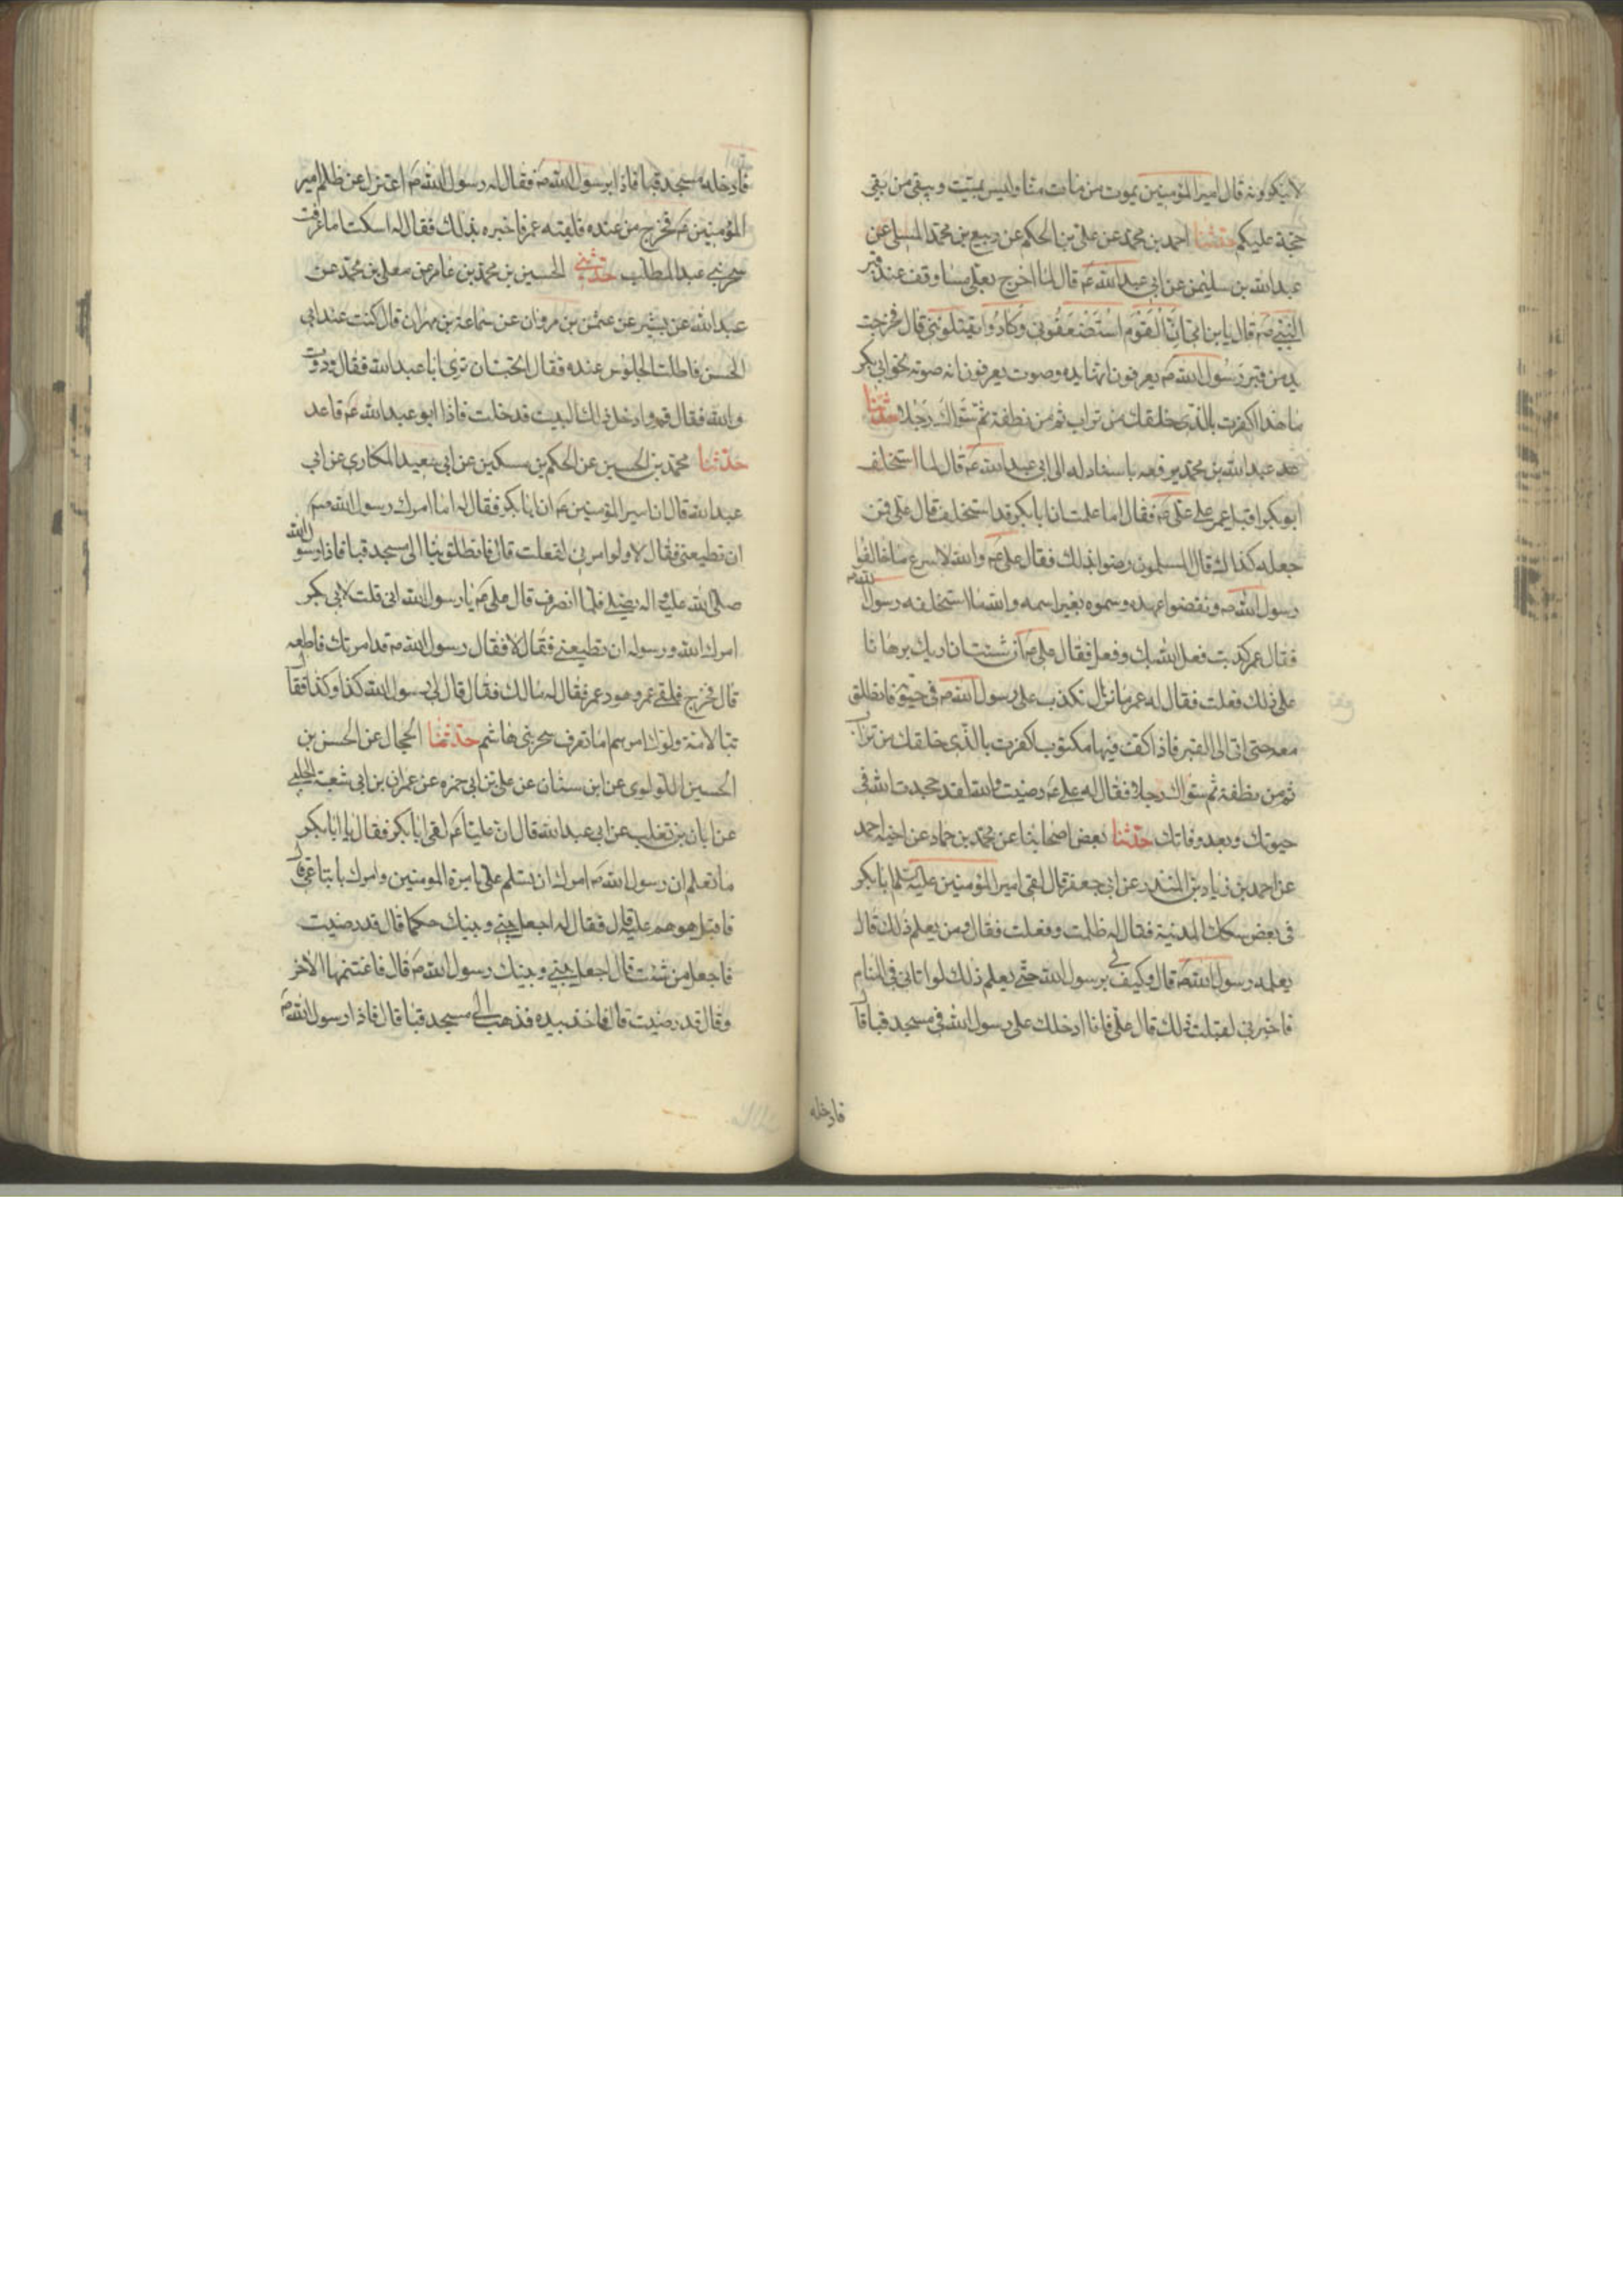 لاينكرونه قال امير المؤمنين يموت من مات منا وليس بميت ويبقى من بقى
حجة عليكم حدثنا احمد بن محمد عن على بن الحكم عن ربيع بن محمد المسلى عن
عبدالله بن سليمن عن ابى عبدالله ع قال لما اخرج بعلى ملببا وقف عند قبر
النبى ص قال يابن ام ان القوم استضعفونى وكادوا يقتلوننى قال فخرجت
يد من قبر رسول الله ص يعرفون انها يده وصوت يعرفون انه صوته نحو ابى بكر
يا هذا اكفرت بالذى خلقك من تراب ثم من نطفة ثم سواك رجلا حدثنا
عبدالله بن محمد يرفعه باسناد له الى ابى عبدالله ع قال لما استخلف
ابو بكر اقبل عمر على على ع فقال اما علمت ان ابا بكر قد استخلف قال على فمن
جعله كذلك قال المسلمون رضوا بذلك فقال على ع والله لاسرع ما خالفوا
رسول الله ص ونقضوا عهده وسموه بغير اسمه والله ما استخلفه رسول الله ص
فقال عمر كذبت فعل الله بك وفعل فقال على ع ان شئت ان اريك برهانا
على ذلك فعلت فقال له عمر ما تزال تكذب على رسول الله ص فى حيوته فانطلق
معه حتى اتى الى القبر فاذا كف فيها مكتوب اكفرت بالذى خلقك من تراب
ثم من نطفة ثم سواك رجلا فقال له على ع رضيت والله لقد جحدت الله فى
حيوتك وبعد وفاتك حدثنا بعض اصحابنا عن محمد بن حماد عن اخيه احمد
عن احمد بن زياد بن المنذر عن ابى جعفر قال لقى امير المؤمنين عليه السلم ابا بكر
فى بعض سكك المدينة فقال له ظلمت وفعلت فقال ومن يعلم ذلك قال
يعلمه رسول الله ص قال وكيف لى برسول الله حتى يعلم ذلك لو اتانى فى المنام
فاخبرنى لقبلت ذلك قال على فانا ادخلك على رسول الله فى مسجد قبا قال
فادخله
فادخله مسجد قبا فاذا برسول الله ص فقال له رسول الله ص اعتزل عن ظلم امير
المؤمنين ع فخرج من عنده فلقيه عمر فاخبره بذلك فقال له اسكت اما عرفت
سحر بنى عبد المطلب حدثنى الحسين بن محمد بن عامر عن معلى بن محمد عن
عبدالله عن بشير عن عثمن بن مروان عن سماعة بن مهران قال كنت عند ابى
الحسن فاطلت الجلوس عنده فقال اتحب ان ترى ابا عبدالله فقال وددت
والله فقال قم وادخل ذلك البيت فدخلت فاذا ابو عبدالله ع قاعد
حدثنا محمد بن الحسين عن الحكم بن مسكين عن ابى سعيد المكارى عن ابى
عبدالله قال ان امير المؤمنين ع اتى ابا بكر فقال له اما امرك رسول الله ص
ان تطيعنى فقال لا ولو امرنى لفعلت قال فانطلق بنا الى مسجد قبا فاذا رسول الله
صلى الله عليه واله يصلى فلما انصرف قال على ع يا رسول الله انى قلت لابى بكر
امرك الله ورسوله ان تطيعنى فقال لا فقال رسول الله ص قد امرتك فاطعه
قال فخرج فلقى عمر وهو ذعر فقال له مالك فقال قال لى رسول الله كذا وكذا فقال
تبا لامة ولوك امرهم اما تعرف سحر بنى هاشم حدثنا الحجال عن الحسن بن
الحسين اللؤلوى عن ابن سنان عن على بن ابى حمزه عن عمران بن ابى شعبة الحلبى
عن ابان بن تغلب عن ابى عبدالله قال ان عليا ع لقى ابا بكر فقال يا ابا بكر
ما تعلم ان رسول الله ص امرك ان تسلم على بامرة المومنين وامرك باتباعى قال
فاقبل هوهم عليه قال فقال له اجعل بينى وبينك حكما قال قد رضيت
فاجعل من شئت قال اجعل بينى وبينك رسول الله ص قال فاغتنمها الاخر
وقال قد رضيت قال فاخذ بيده فذهب الى مسجد قبا قال فاذا رسول الله ص